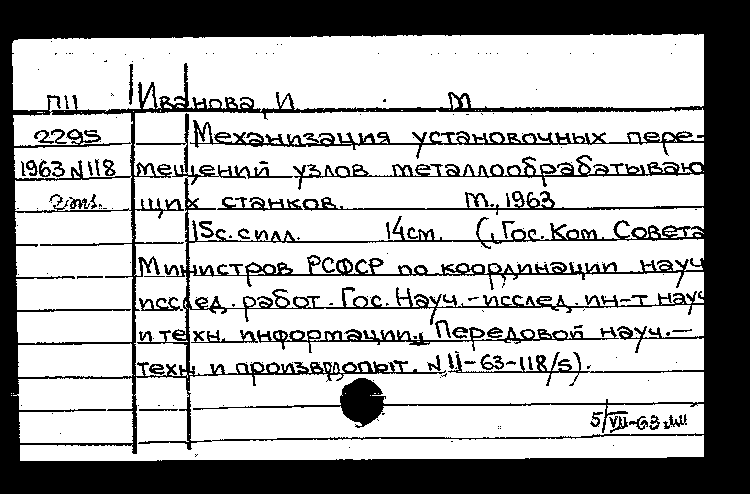 П11 Иванова, И М
2295 Механизация установочных пере-
1963 N118 мещений узлов металлообрабатываю
2 экз. щих станков. М., 1963
15с. с илл. 14см. (Гос. Ком. Совета
Министров РСФСР по координации науч
исслед. работ. Гос. Науч.-исслед. ин-т науч
и техн. информации. Передовой науч.-
техн. и произв. опыт. N 11-63-118/5).
5/VII-63